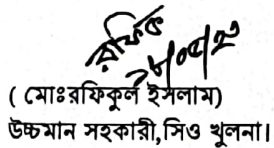 রফিক
( মোঃরফিকুল ইসলাম)
উচ্চমান সহকারী,সিও খুলনা।